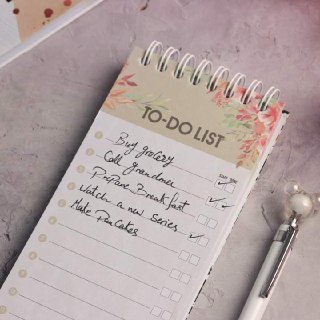 TO-DO LIST
Buy grocery
Call grandmee
Prepare Breakfast
Watch a new series
Make Pancakes